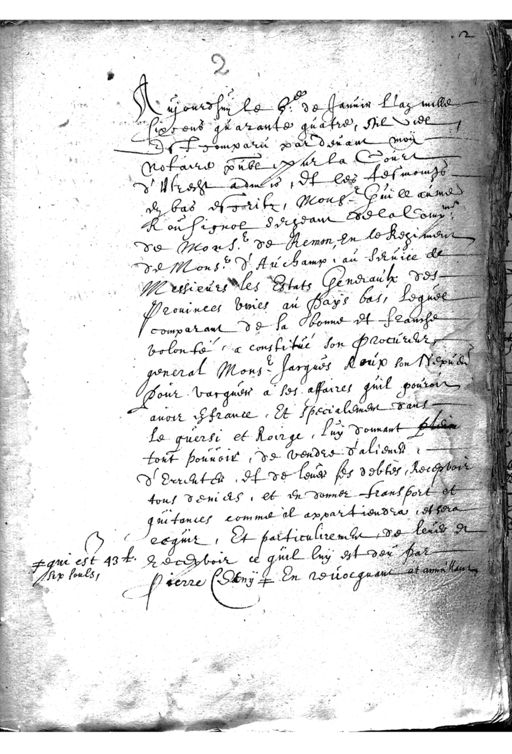 2
2
Aujourdhuy le 8.e de Janvir L'an mille
Sixcens quarante quatre, stil
Est Comparu par devant moy
Notaire publ par la Court
d'Utrecht admis, Et les tesmoings
cy bas escrits, Mons.r Guilleaume
Roussignol Sergeant de la Comp.nie
de Mons.r de Remon, En le Regiment
de Mons.r d'Auchamp, au service de
Messieurs les Estats Generaulx des
Provinces Unies au Pays bas, Lequel
comparant de sa bonne et franche
volonté, a constitué son Procureur
general Mons.r Jacques Roux son Nepveu
Pour vacquer a ses affaires qu'il pouroit
avoir en france, Et specialement dans
Le quersi et Roirge, luy donnant plein
tout pouvoir, de vendre d'aliener,
d'Arrenter, et de lever ses debtes, Recepvoir
tous deniers, et en donner transport et
quitances comme il appartiendra, et sera
requir, Et particulirement de lever et
recepvoir ce quil luy est deu par
Pierre ǂ En revocquant et annullant
ǂ qui est 43 ₶.
six souls,